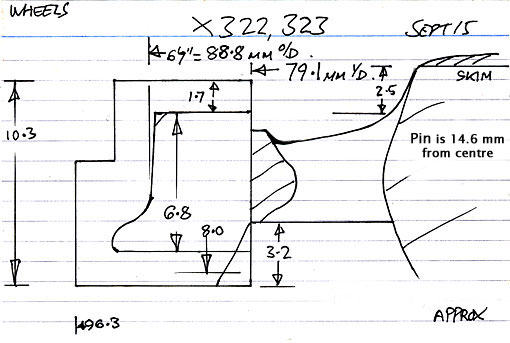 WHEELS
X322, 323
SEPT 15
64" = 88.8 MM O/D.
79.1 MM I/D.
1.7
2.5
SKIM
10.3
Pin is 14.6 mm
from centre
6.8
8.0
3.2
96.3
APPROX